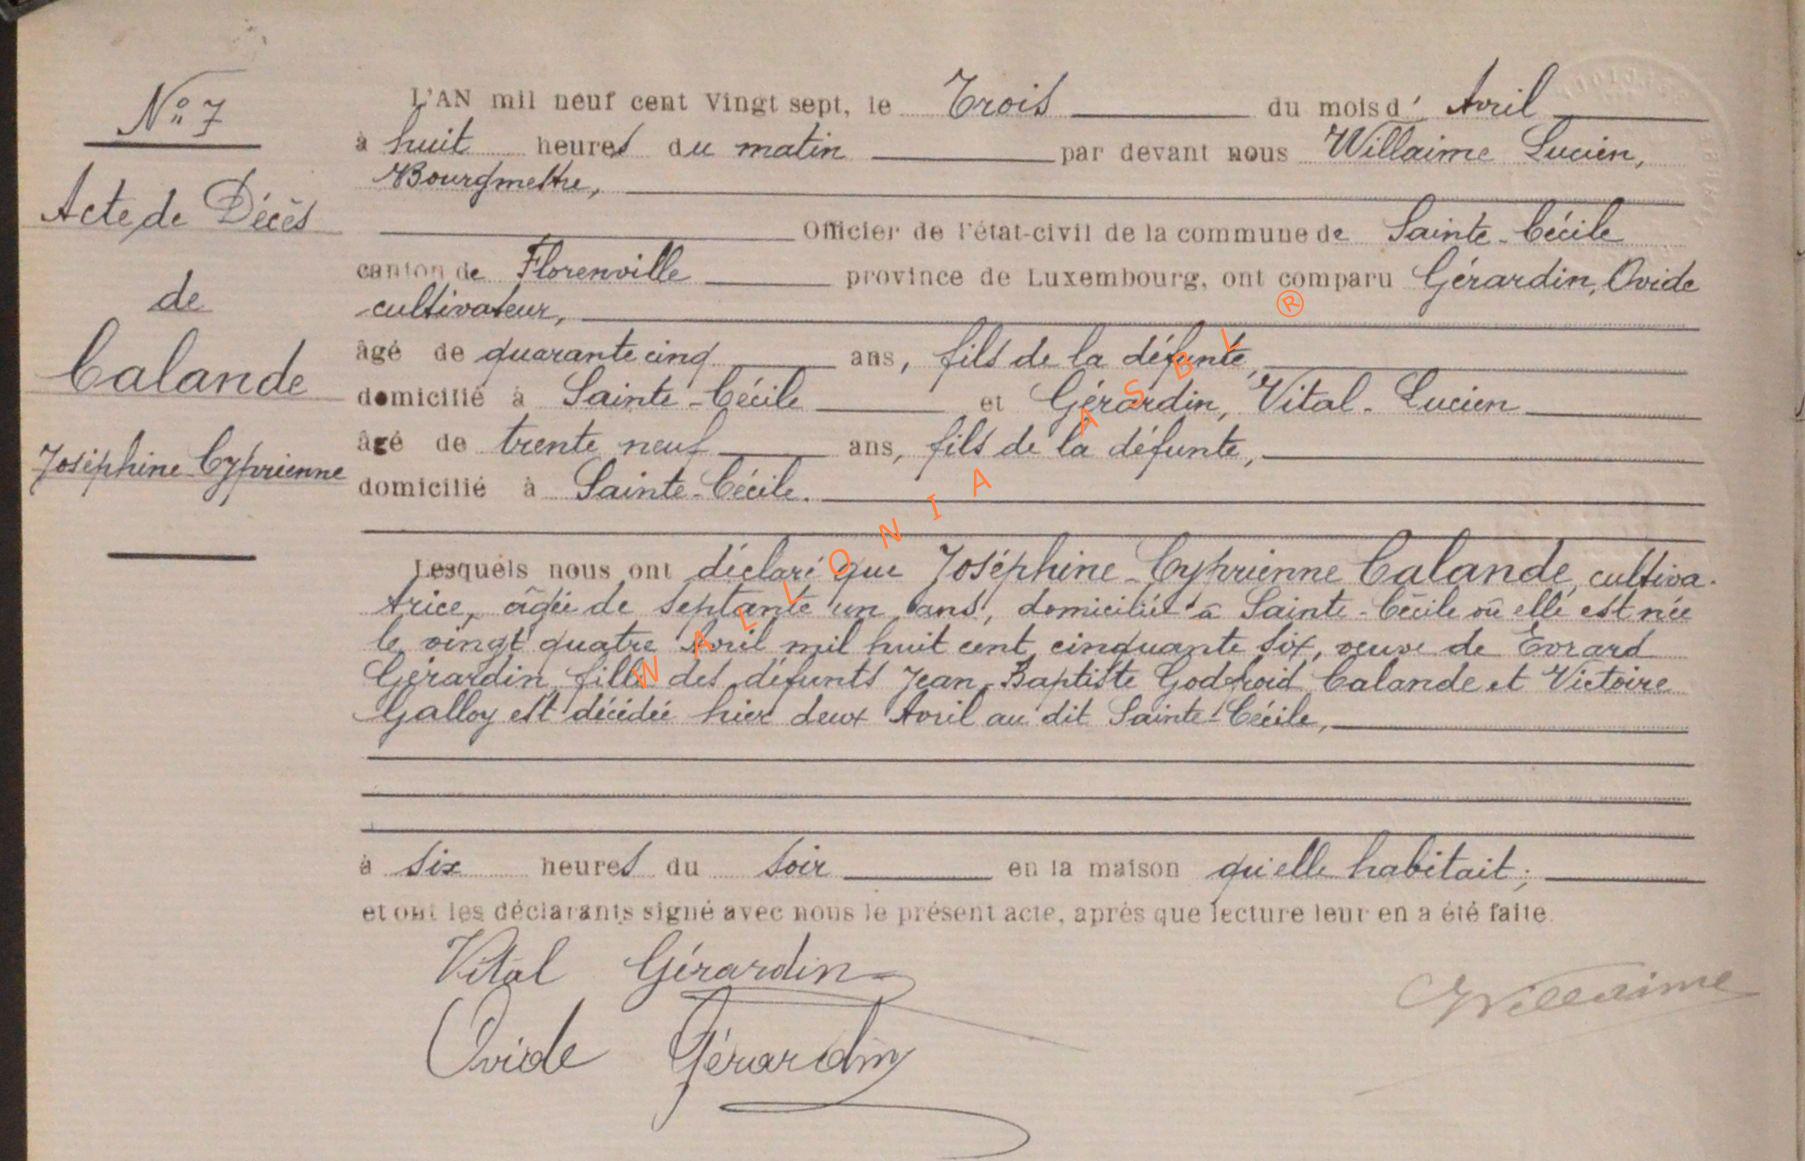 N° 7
Acte de Décès
de
Calande
Joséphine-Cyprienne
L'AN mil neuf cent Vingt sept, le Trois du mois d' Avril
à huit heures du matin par devant nous Willaime Lucien,
Bourgmestre,
Officier de l'état-civil de la commune de Sainte-Cécile
canton de Florenville province de Luxembourg, ont comparu Gérardin, Ovide
cultivateur,
âgé de quarante cinq ans, fils de la défunte,
domicilié à Sainte-Cécile et Gérardin, Vital-Lucien
âgé de trente neuf ans, fils de la défunte,
domicilié à Sainte-Cécile.
Lesquels nous ont déclaré que Joséphine-Cyprienne Calande, cultiva-
trice, âgée de septante un ans, domiciliée à Sainte-Cécile où elle est née
le vingt quatre Avril mil huit cent cinquante six, veuve de Evrard
Gérardin, fille des défunts Jean-Baptiste Godfroid Calande et Victoire
Galloy est décédée hier deux Avril au dit Sainte-Cécile,
à six heures du soir en la maison qu'elle habitait;
et ont les déclarants signé avec nous le présent acte, après que lecture leur en a été faite.
Vital Gérardin
Willaime
Ovide Gérardin
WALLONIA ASBL ®